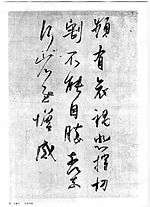 頻有哀禍悲摧切
割不能自勝奈何奈何
省慰增感